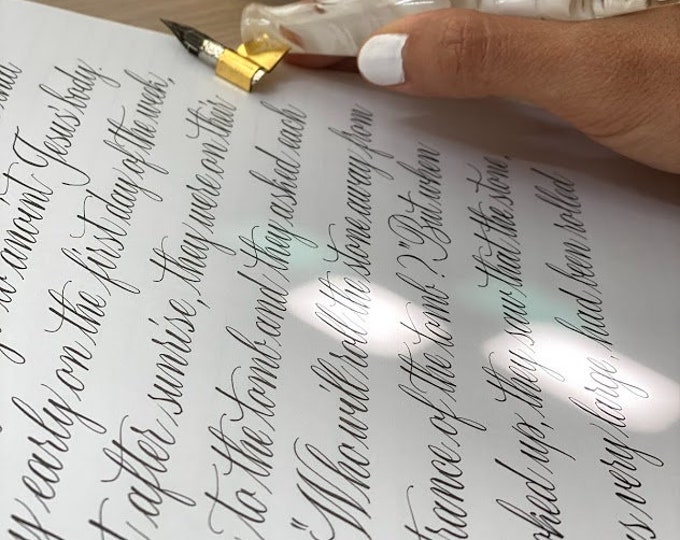 to anoint Jesus' body.
y early on the first day of the week,
t after sunrise, they were on their
to the tomb and they asked each
"Who will roll the stone away from
trance of the tomb?" But when
oked up, they saw that the stone,
s very large, had been rolled